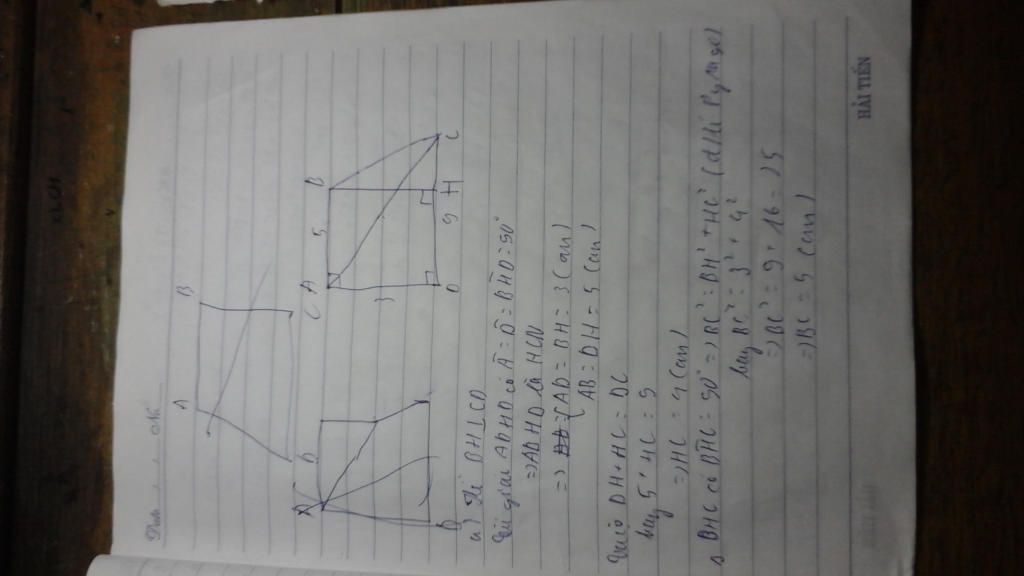 Date No
A B
A B
5
3
D 9 H C
A
B
C
D
a) Kẻ BH ⊥ CD
Tứ giác ABHD có Â = D̂ = BĤD = 90°
=> ABHD là HCN
=> { AD = BH = 3 (cm)
AB = DH = 5 (cm)
DH + HC = DC
hay 5 + HC = 9
=> HC = 4 (cm)
Δ BHC có BĤC = 90° => BC² = BH² + HC² (định lí Pytago)
hay BC² = 3² + 4²
=> BC² = 9 + 16 = 25
=> BC = 5 (cm)
HẢI TIẾN